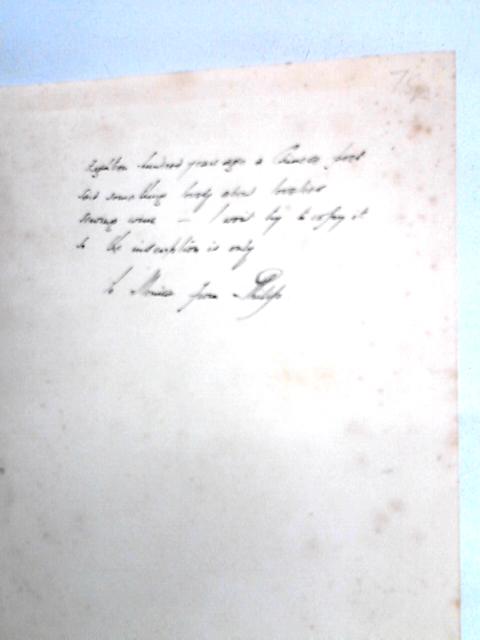 hundred years ago a Chinese poet
said something lovely about
wine — I won't try to copy it
so the inscription is only
to Monica from Philip